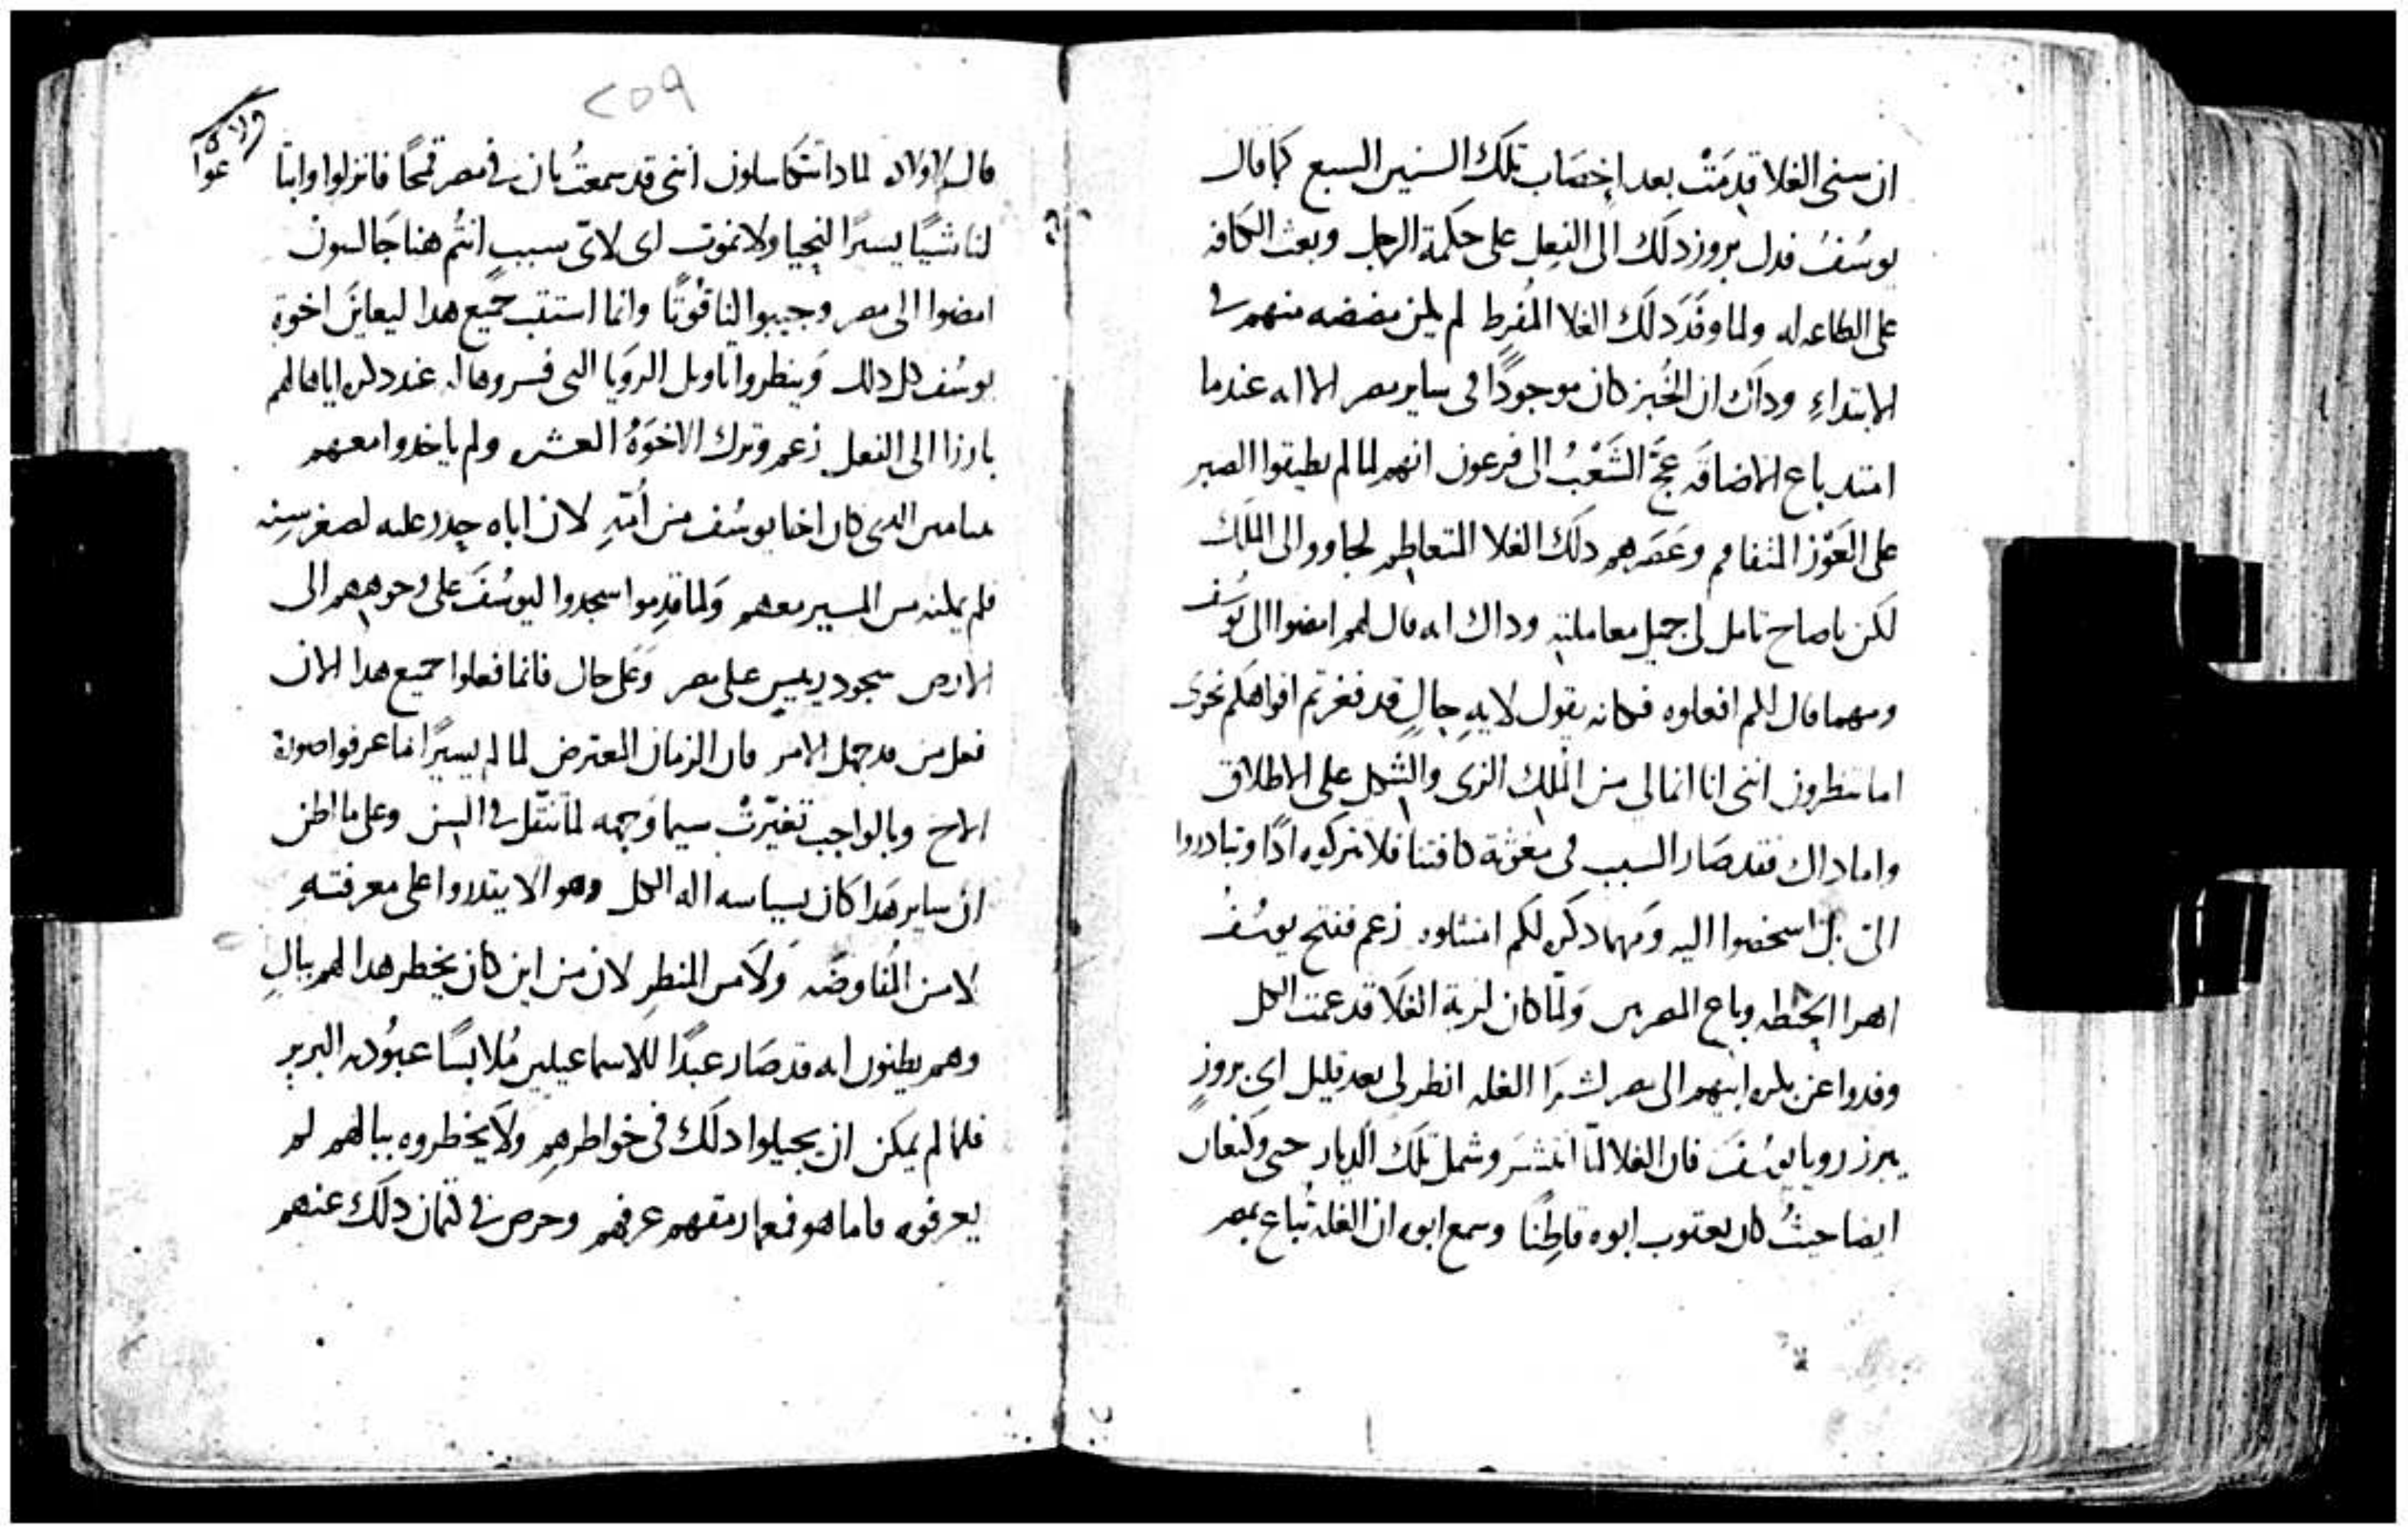 ان سنى الغلا قدِمَتْ بعد اخصَاب تلك السنين السبع كما قال
يوسُفُ فدل بروز دلك الى الفِعل على حكمة الرجل وبعث الكافه
على الطاعه له ولما وفَدَ دلك الغلا المُفرِط لم يكن مضضه منهم فى
الابتداءِ وداك ان الخُبز كان موجودًا فى ساير مصر الا انه عندما
امتد باع الاضاقَه عَجَّ الشَعْبُ الى فرعون انهم لما لم يطيقوا الصبر
على العَوَز المتفاقم وعَصَرهم دلك الغلا المتعاظم لجاووا الى الملك
لكن ياصاح تامل لى جميل معاملته وداك انه قال لهم امضوا الى يوسُف
ومهما قال لكم افعلوه فكانه يقول لايهِ حالٍ قد فغرتم افواهكم نحوى
اما تنظرون اننى انا انما لى من المُلك الزى والشكل على الاطلاق
واما داك فقد صَار السبب فى مغوثة كافتنا فلا تتركوه ادًا وتبادروا
الىّ بل اشخصوا اليه ومهما دكره لكم امتثلوه زعم ففتح يوسُفُ
اهرا الحِنطه وباع المصريين وَلمّا كان لزبة الغَلَا قد عمت الكل
وفدوا عن بكره ابيهم الى مصر لشرَا الغله انظر لى بعد قليل اى بروزٍ
يبرز رويا يوسُفَ فان الغلا لمّا انتشَر وشمل تلك الديار حتى وكنعان
ايضا حيثُ كان يعقوب ابوه قاطِنًا وسمع ابوه ان الغله تُباع بمصر
٢٥٩
قال للاولاد لمادا تتكاسلون اننى قد سمعتُ بان فى مصر قمحًا فانزلوا وابتا
عوا
لنا شيًا يسيرًا لنحيا ولا نموت اى لاىّ سببٍ انتُم هنا جَالسون
امضوا الى مصر وجيبوا لنا قُوتًا وانما استتب جميع هدا ليعاينَ اخوة
يوسُف كل دلك وَينظروا تاويل الرويَا التى فسروها له عند دكره اياها لهم
بارزا الى الفعل زعم وترك الاخوَهُ العشره ولم ياخدوا معهم
بنيامين الدى كان اخا يوسُف من اُمّهِ لان اباه حدر عليه لصغر سِنه
فلم يمكنه من المسير معهم وَلما قدِموا سجدوا ليوسُفَ على وجوههم الى
الارض سجود رييس على مصر وَعَلى حال فانما فعلوا جميع هدا الان
فعل من قد جهل الامر فان الزمان المعترض لما لم يسيرًا ما عرفوا صورة
الاخ وبالواجب تغيّرتْ سيما وَجهه لما تنقّل فى السِن وعلى ما اظن
ان ساير هَدا كان بسياسه اله الكل وهو الا يقدروا على معرفتهِ
لا من المُفاوضَه وَلَا من المنظر لان من اين كان يخطر هدا لهم ببالٍ
وهم يظنون انه قد صَار عبدًا للاسماعيليين مُلابسًا عبوُديه البربر
فلما لم يمكن ان يحيلوا دلك فى خواطرهِم ولَا يخطروه ببالهم لم
يعرفوه فاما هو فمعما رمقهم عرفهم وحرص فى كتمان دلك عنهم